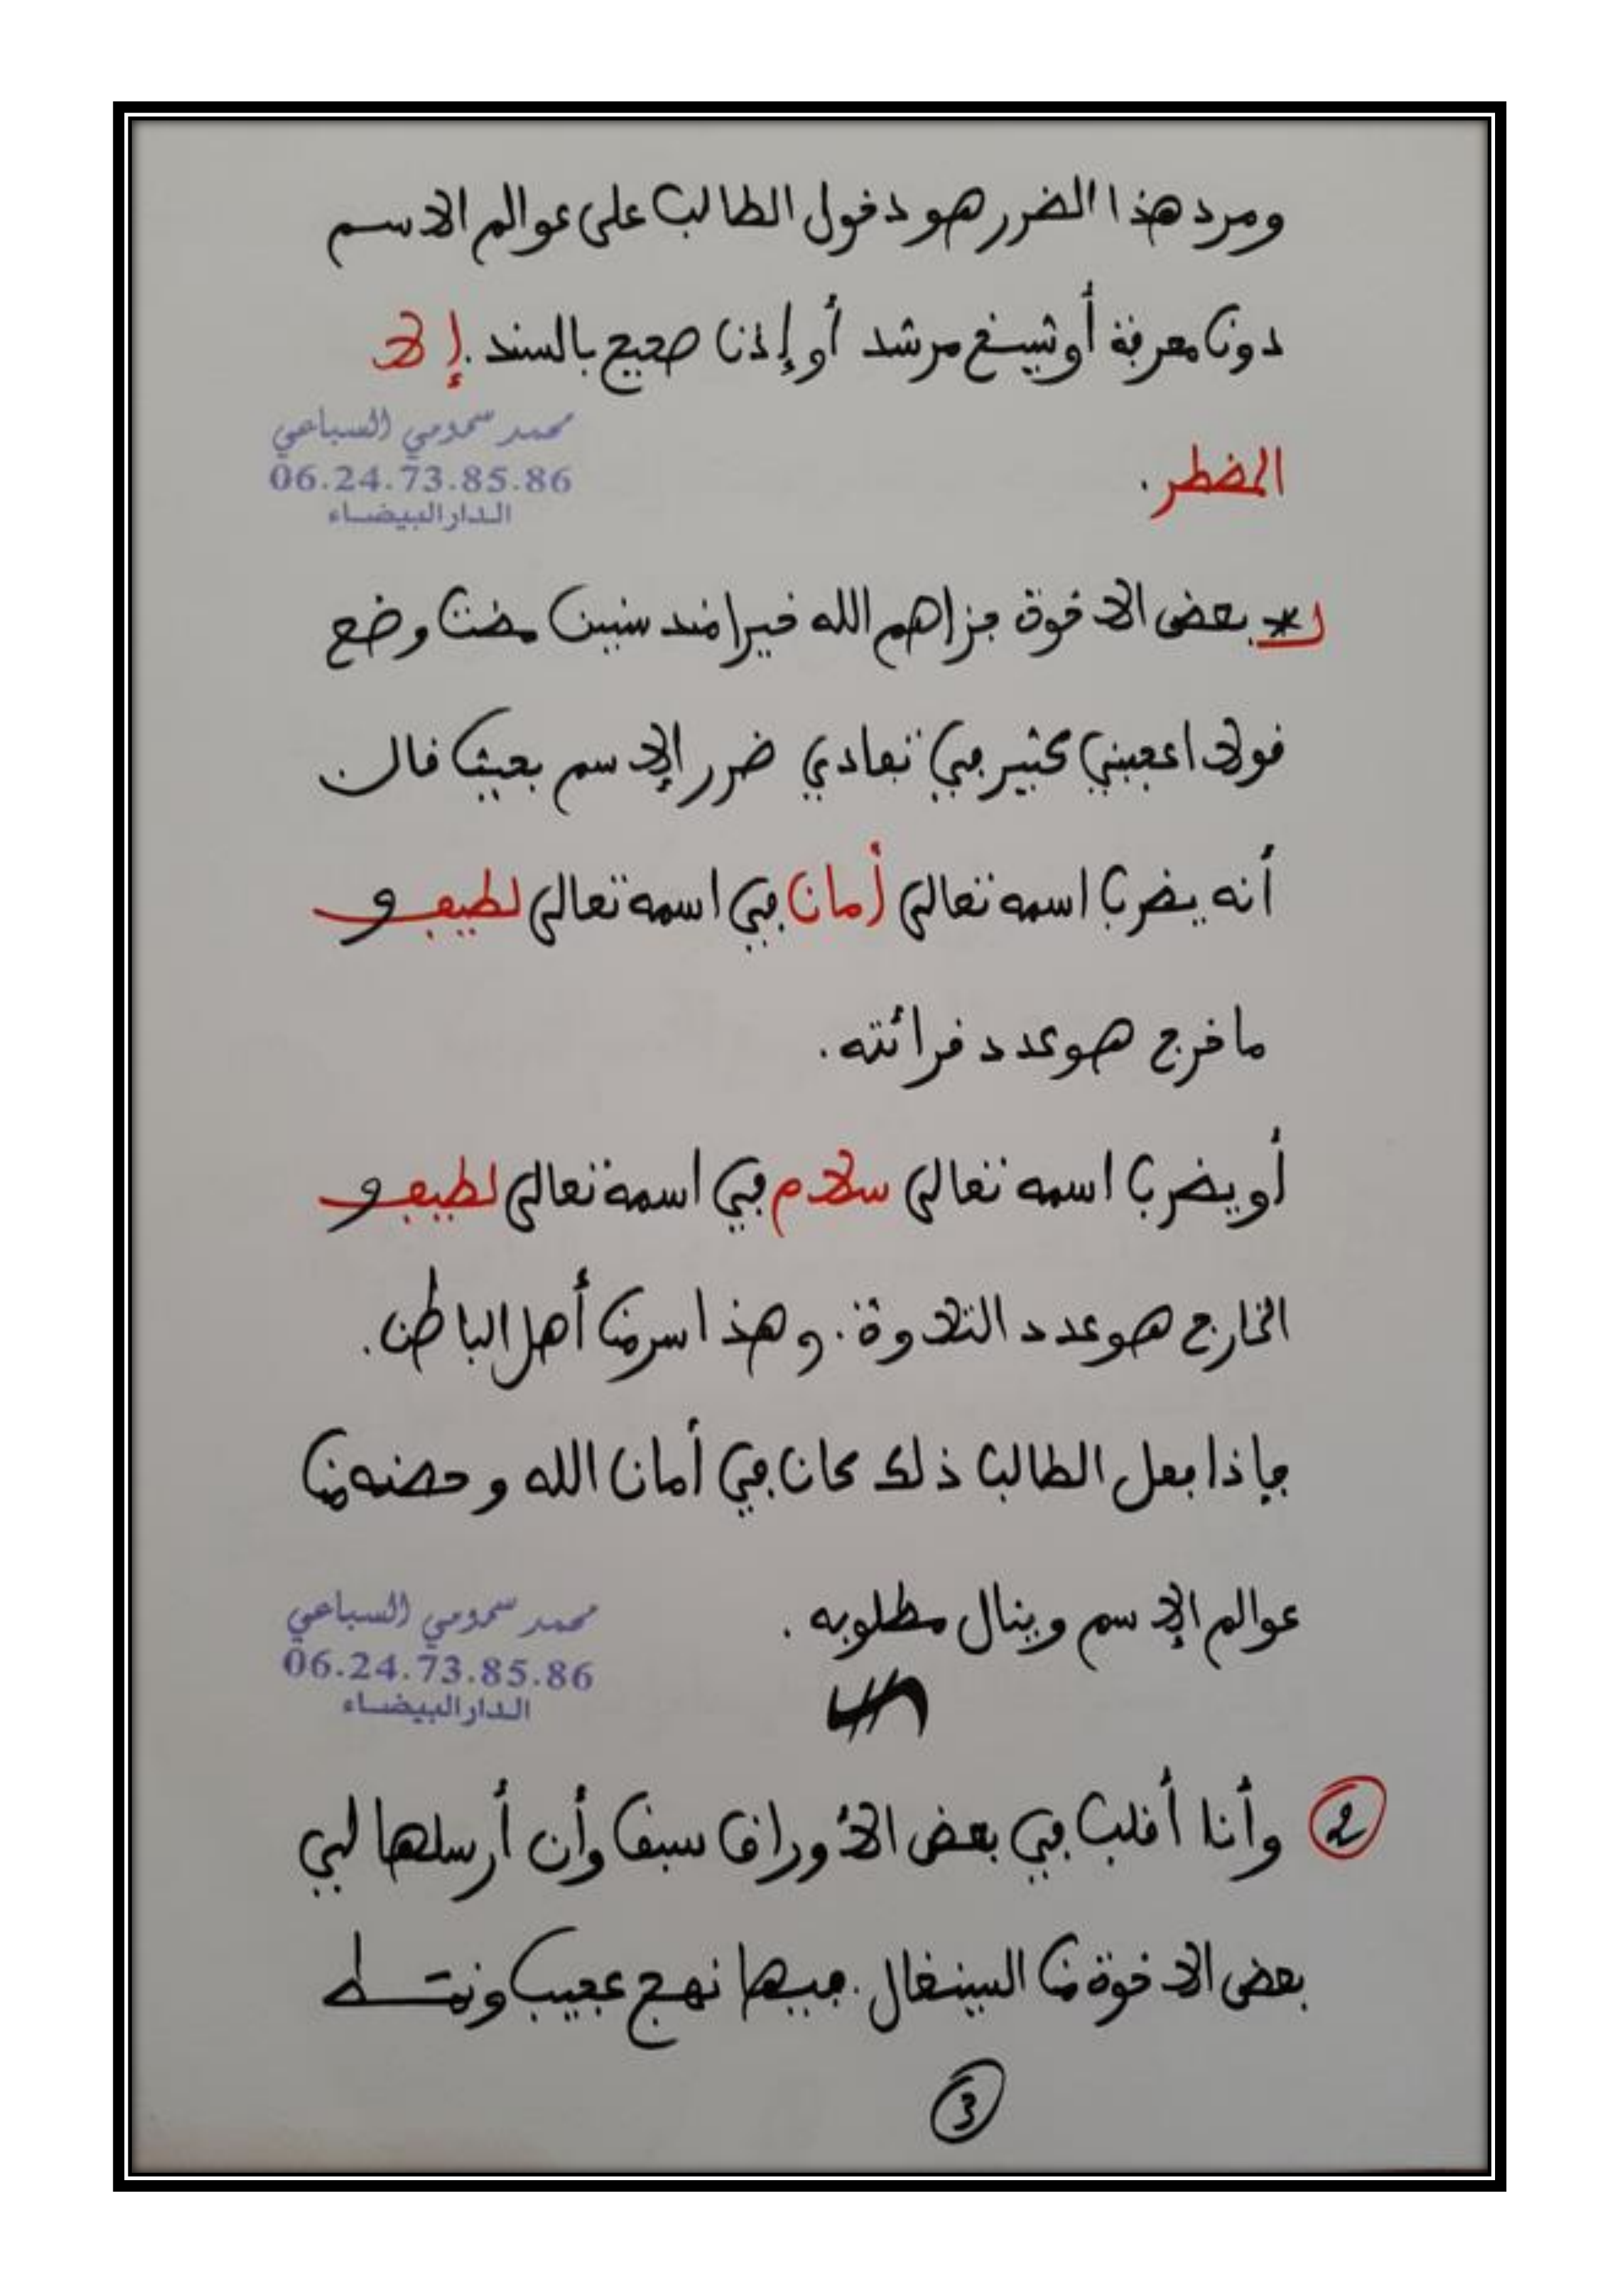 ومرد هذا الضرر هو دخول الطالب على عوالم الاسم
دون معرفة أو شيخ مرشد أو إذن صحيح بالسند . إلا
محمد سمومي السباعي
06.24.73.85.86
الدار البيضاء
المضطر .
* بعض الاخوة جزاهم الله خيرا مند سنين مضت وضع
قولا اعجبني كثير في تفادي ضرر الإسم بحيث قال
أنه يضرب اسمه تعالى أمان في اسمه تعالى لطيف و
ما خرج هو عدد قرائته .
أو يضرب اسمه تعالى سلام في اسمه تعالى لطيف و
الخارج هو عدد التلاوة . وهذا سر من أهل الباطن .
فإذا فعل الطالب ذلك كان في أمان الله وحضنه من
عوالم الإسم وينال مطلوبه .
محمد سمومي السباعي
06.24.73.85.86
الدار البيضاء
2 وأنا أقلب في بعض الأوراق سبق وأن أرسلها لي
بعض الاخوة من السينغال . فيها نهج عجيب ونمط
3